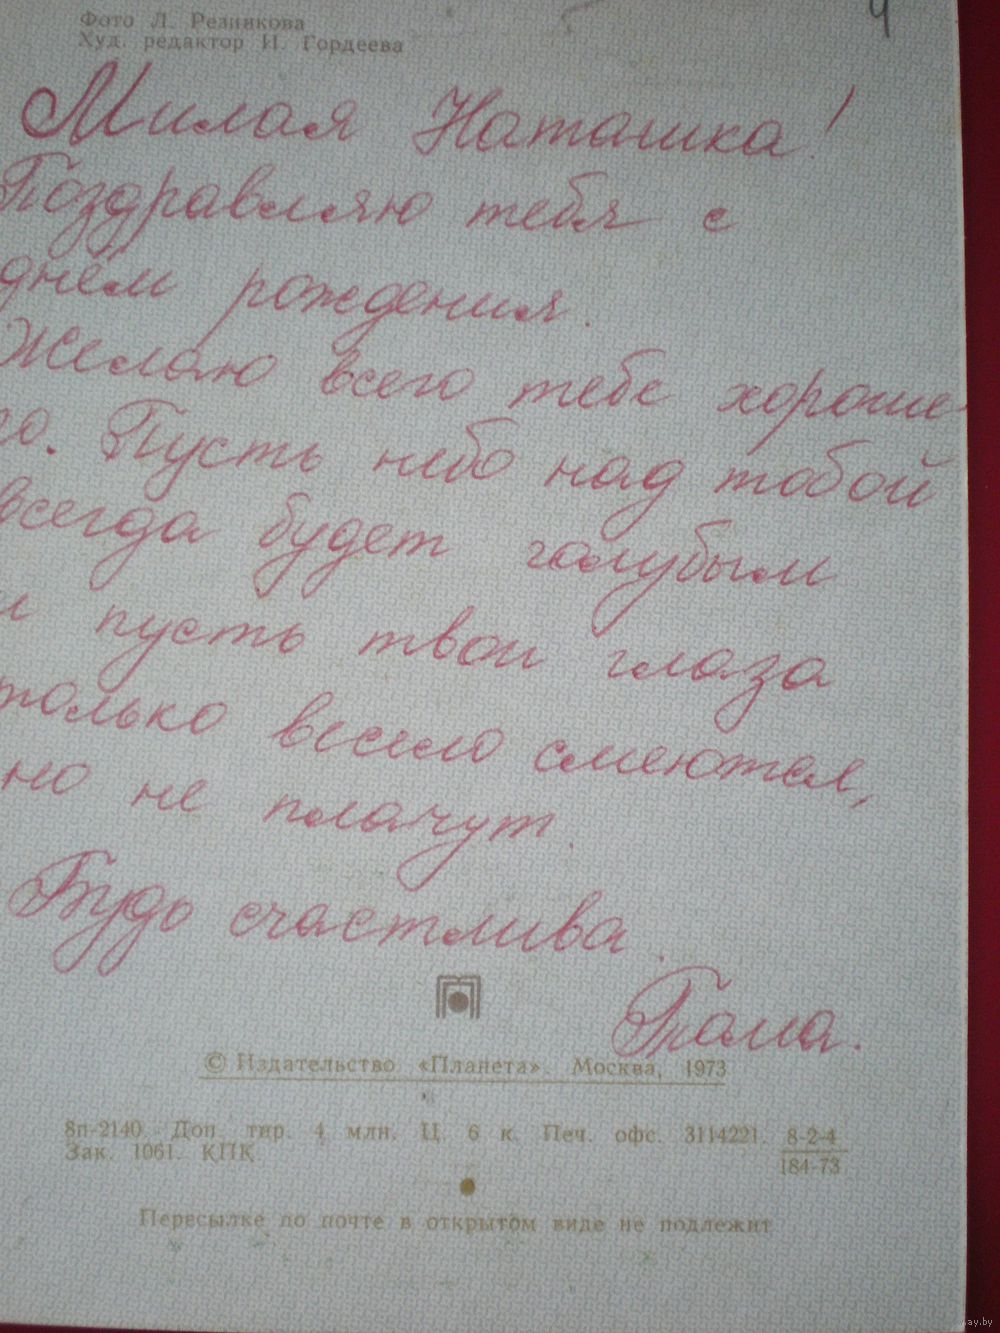 Фото Л. Резникова
Худ. редактор И. Гордеева
Милая Наташка!
Поздравляю тебя с
днём рождения.
Желаю всего тебе хороше
го. Пусть небо над тобой
всегда будет голубым
и пусть твои глаза
только весело смеются,
но не плачут.
Будь счастлива.
Тома.
© Издательство «Планета». Москва, 1973
8п-2140. Доп. тир. 4 млн. Ц. 6 к. Печ. офс. 3114221. 8-2-4
Зак. 1061. КПК 184-73
Пересылке по почте в открытом виде не подлежит